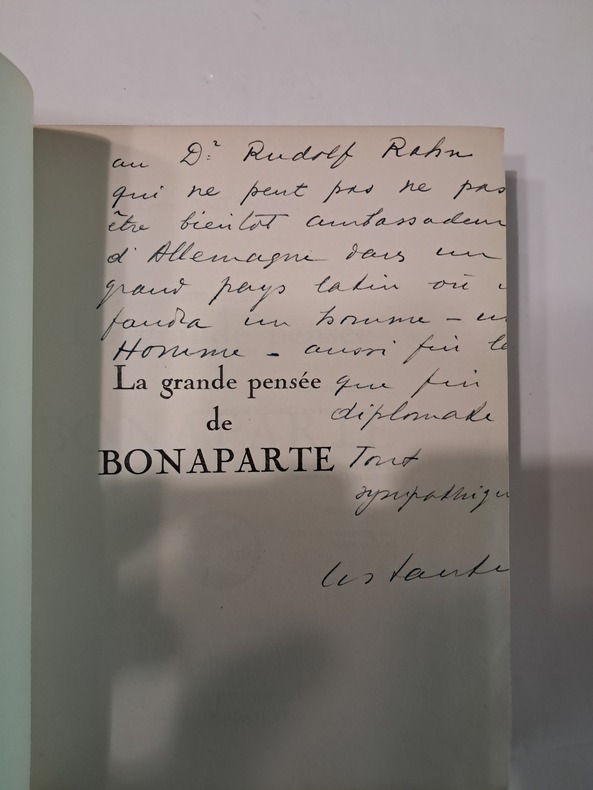 au Dr Rudolf Rahn
qui ne peut pas ne pas
être bientot ambassadeur
d'Allemagne dans un
grand pays latin où
faudra un homme – un
Homme – aussi fin
La grande pensée
que fin
de
diplomate
BONAPARTE
Tout